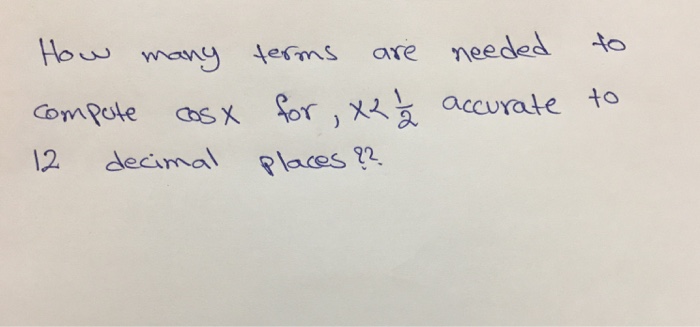 How many terms are needed to
compute cos x for, x < 1/2 accurate to
12 decimal places??